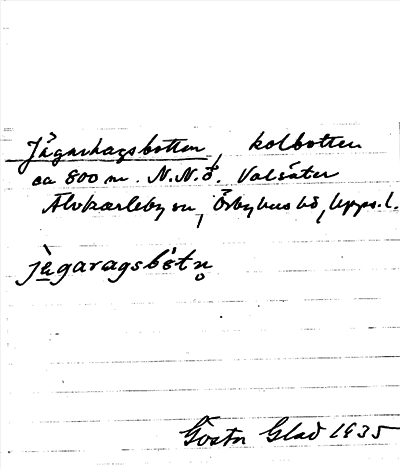 Jägarhagsbotten, kolbotten
ca 800 m. N.N.Ö. Valsäter
Älvkarleby sn, Örbyhus hd, Upps. l.
jägaragsbòtn̥
Gösta Glad 1935